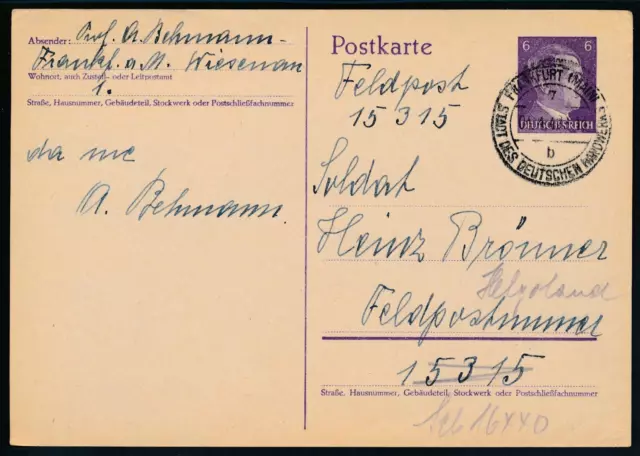 Absender: Prof. A. Behmann-
Frankf. a. M. Wiesenau
Wohnort, auch Zustell- oder Leitpostamt
1.
Straße, Hausnummer, Gebäudeteil, Stockwerk oder Postschließfachnummer
da me
A. Behmann.
Postkarte
6 6
DEUTSCHES REICH
FRANKFURT (MAIN)
7
b
STADT DES DEUTSCHEN HANDWERKS
Feldpost
15315
Soldat
Heinz Brönner
Helgoland
Feldpostnummer
15315
Straße, Hausnummer, Gebäudeteil, Stockwerk oder Postschließfachnummer